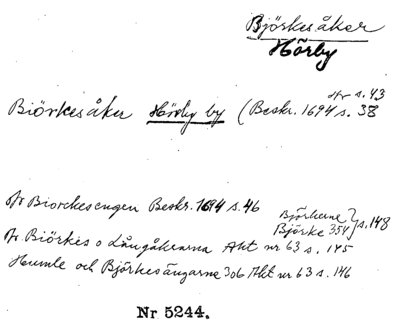 Björkesåker
Hörby
Jfr s. 43
Biörkesåker Hörby by (Beskr. 1694 s. 38
Jfr Biorckesengen Beskr. 1694 s. 46
Björkerne
Björke 354 } s. 148
Jfr. Biörkes o Långåkrarna Akt nr 63 s. 145
Humle och Björkesängarne 306 Akt nr 63 s. 146
Nr 5244.